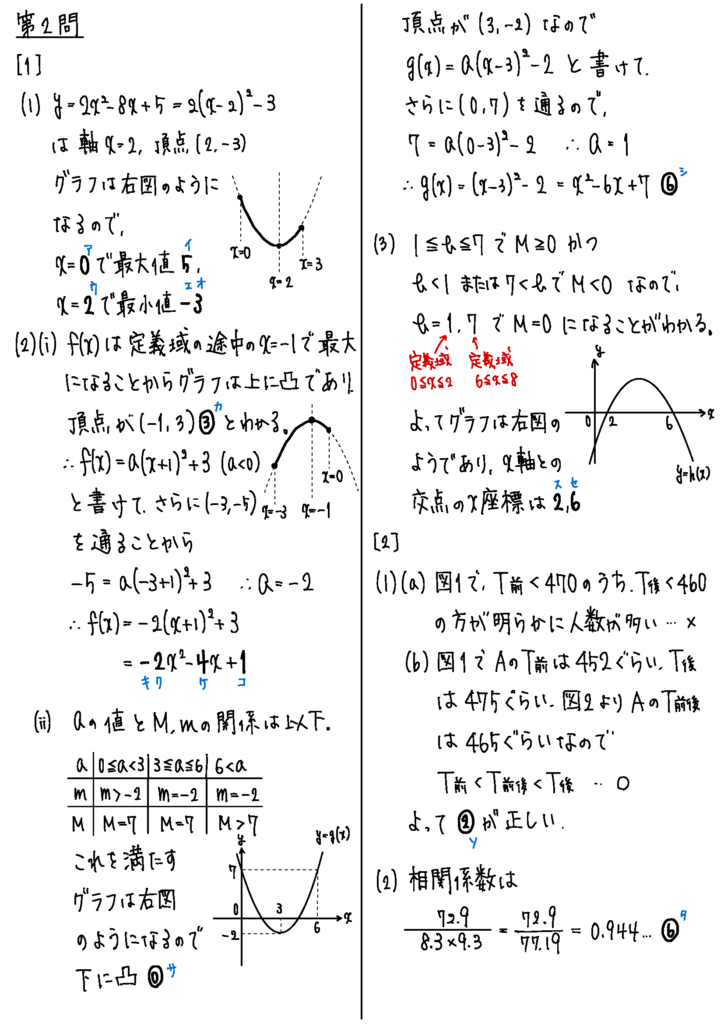 第2問
[1]
(1) y=2x²-8x+5=2(x-2)²-3
は軸x=2, 頂点(2,-3)
グラフは右図のように
なるので,
x=0
x=2
x=3
ア イ
x=0で最大値5,
ウ エオ
x=2で最小値-3
(2)(i) f(x)は定義域の途中のx=-1で最大
になることからグラフは上に凸であり
頂点が(-1,3)③とわかる。
カ
∴f(x)=a(x+1)²+3 (a<0)
と書けて、さらに(-3,-5)
x=-3
x=-1
x=0
を通ることから
-5=a(-3+1)²+3 ∴a=-2
∴f(x)=-2(x+1)²+3
=-2x²-4x+1
キク ケ コ
(ii) aの値とM,mの関係は以下.
a 0≦a<3 3≦a≦6 6<a
m m>-2 m=-2 m=-2
M M=7 M=7 M>7
これを満たす
グラフは右図
のようになるので
下に凸 ⓪サ
y
y=g(x)
7
0
3
6
x
-2
頂点が(3,-2)なので
g(x)=a(x-3)²-2 と書けて、
さらに(0,7)を通るので,
7=a(0-3)²-2 ∴a=1
∴g(x)=(x-3)²-2=x²-6x+7 ⑥シ
(3) 1≦k≦7でM≧0かつ
k<1または7<kでM<0なので,
k=1,7でM=0になることがわかる。
定義域 定義域
0≦x≦2 6≦x≦8
よってグラフは右図の
ようであり, x軸との
交点のx座標は2,6
ス セ
y
0
2
6
x
y=h(x)
[2]
(1)(a) 図1で, T前<470のうち、T後<460
の方が明らかに人数が多い…×
(b) 図1でAのT前は452ぐらい、T後
は475ぐらい、図2よりAのT前後
は465ぐらいなので
T前<T前後<T後 …○
よって②が正しい.
ソ
(2) 相関係数は
72.9/8.3×9.3 = 72.9/77.19 = 0.944… ⑥タ